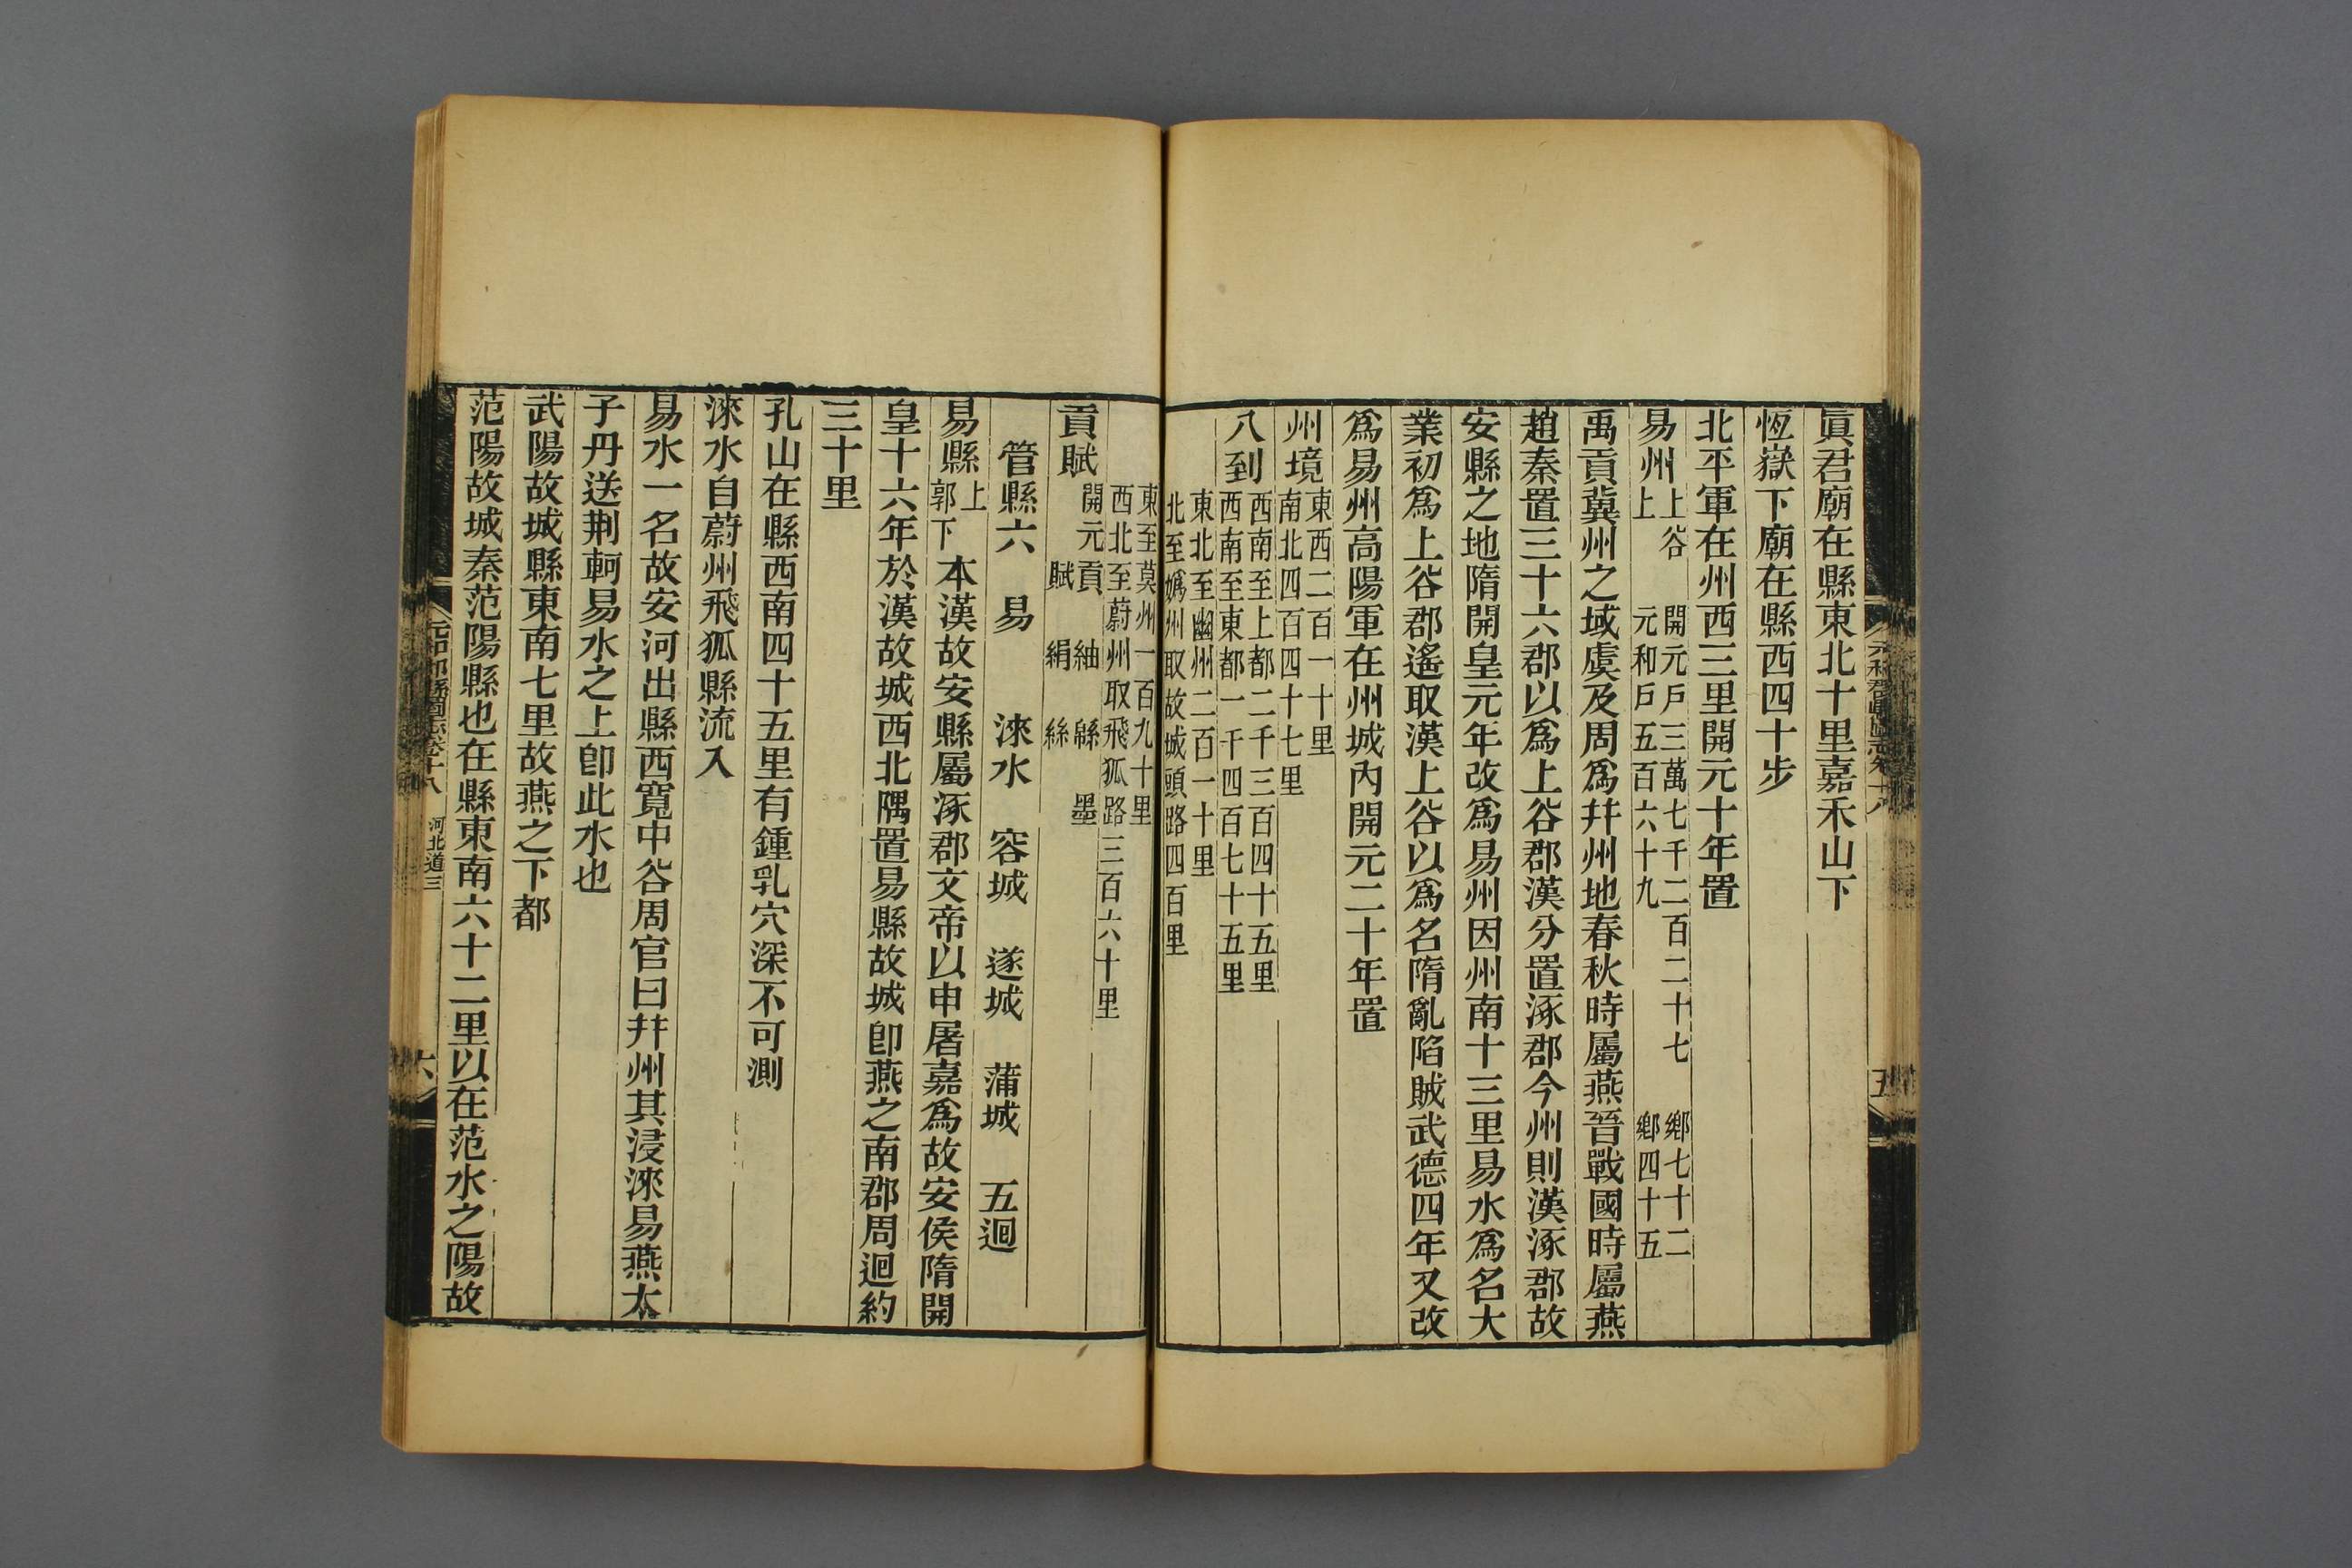 眞君廟在縣東北十里嘉禾山下
恆嶽下廟在縣西四十步
北平軍在州西三里開元十年置
易州上谷 開元戶三萬七千二百二十七 鄉七十二
上 元和戶五百六十九 鄉四十五
禹貢冀州之域虞及周爲幷州地春秋時屬燕晉戰國時屬燕
趙秦置三十六郡以爲上谷郡漢分置涿郡今州則漢涿郡故
安縣之地隋開皇元年改爲易州因州南十三里易水爲名大
業初爲上谷郡遙取漢上谷以爲名隋亂陷賊武德四年又改
爲易州高陽軍在州城內開元二十年置
州境東西二百一十里
南北四百四十七里
八到西南至上都二千三百四十五里
西南至東都一千四百七十五里
東北至幽州二百一十里
北至嬀州取故城頭路四百里
東至莫州一百九十里
西北至蔚州取飛狐路三百六十里
貢賦開元貢 紬 緜 墨
賦 絹 絲
管縣六 易 淶水 容城 遂城 蒲城 五迴
易縣上
郭下
本漢故安縣屬涿郡文帝以申屠嘉爲故安侯隋開
皇十六年於漢故城西北隅置易縣故城卽燕之南郡周迴約
三十里
孔山在縣西南四十五里有鍾乳穴深不可測
淶水自蔚州飛狐縣流入
易水一名故安河出縣西寬中谷周官曰幷州其浸淶易燕太
子丹送荆軻易水之上卽此水也
武陽故城縣東南七里故燕之下都
范陽故城秦范陽縣也在縣東南六十二里以在范水之陽故
元和郡縣圖志卷十八 河北道三
六
元和郡縣圖志卷十八
五